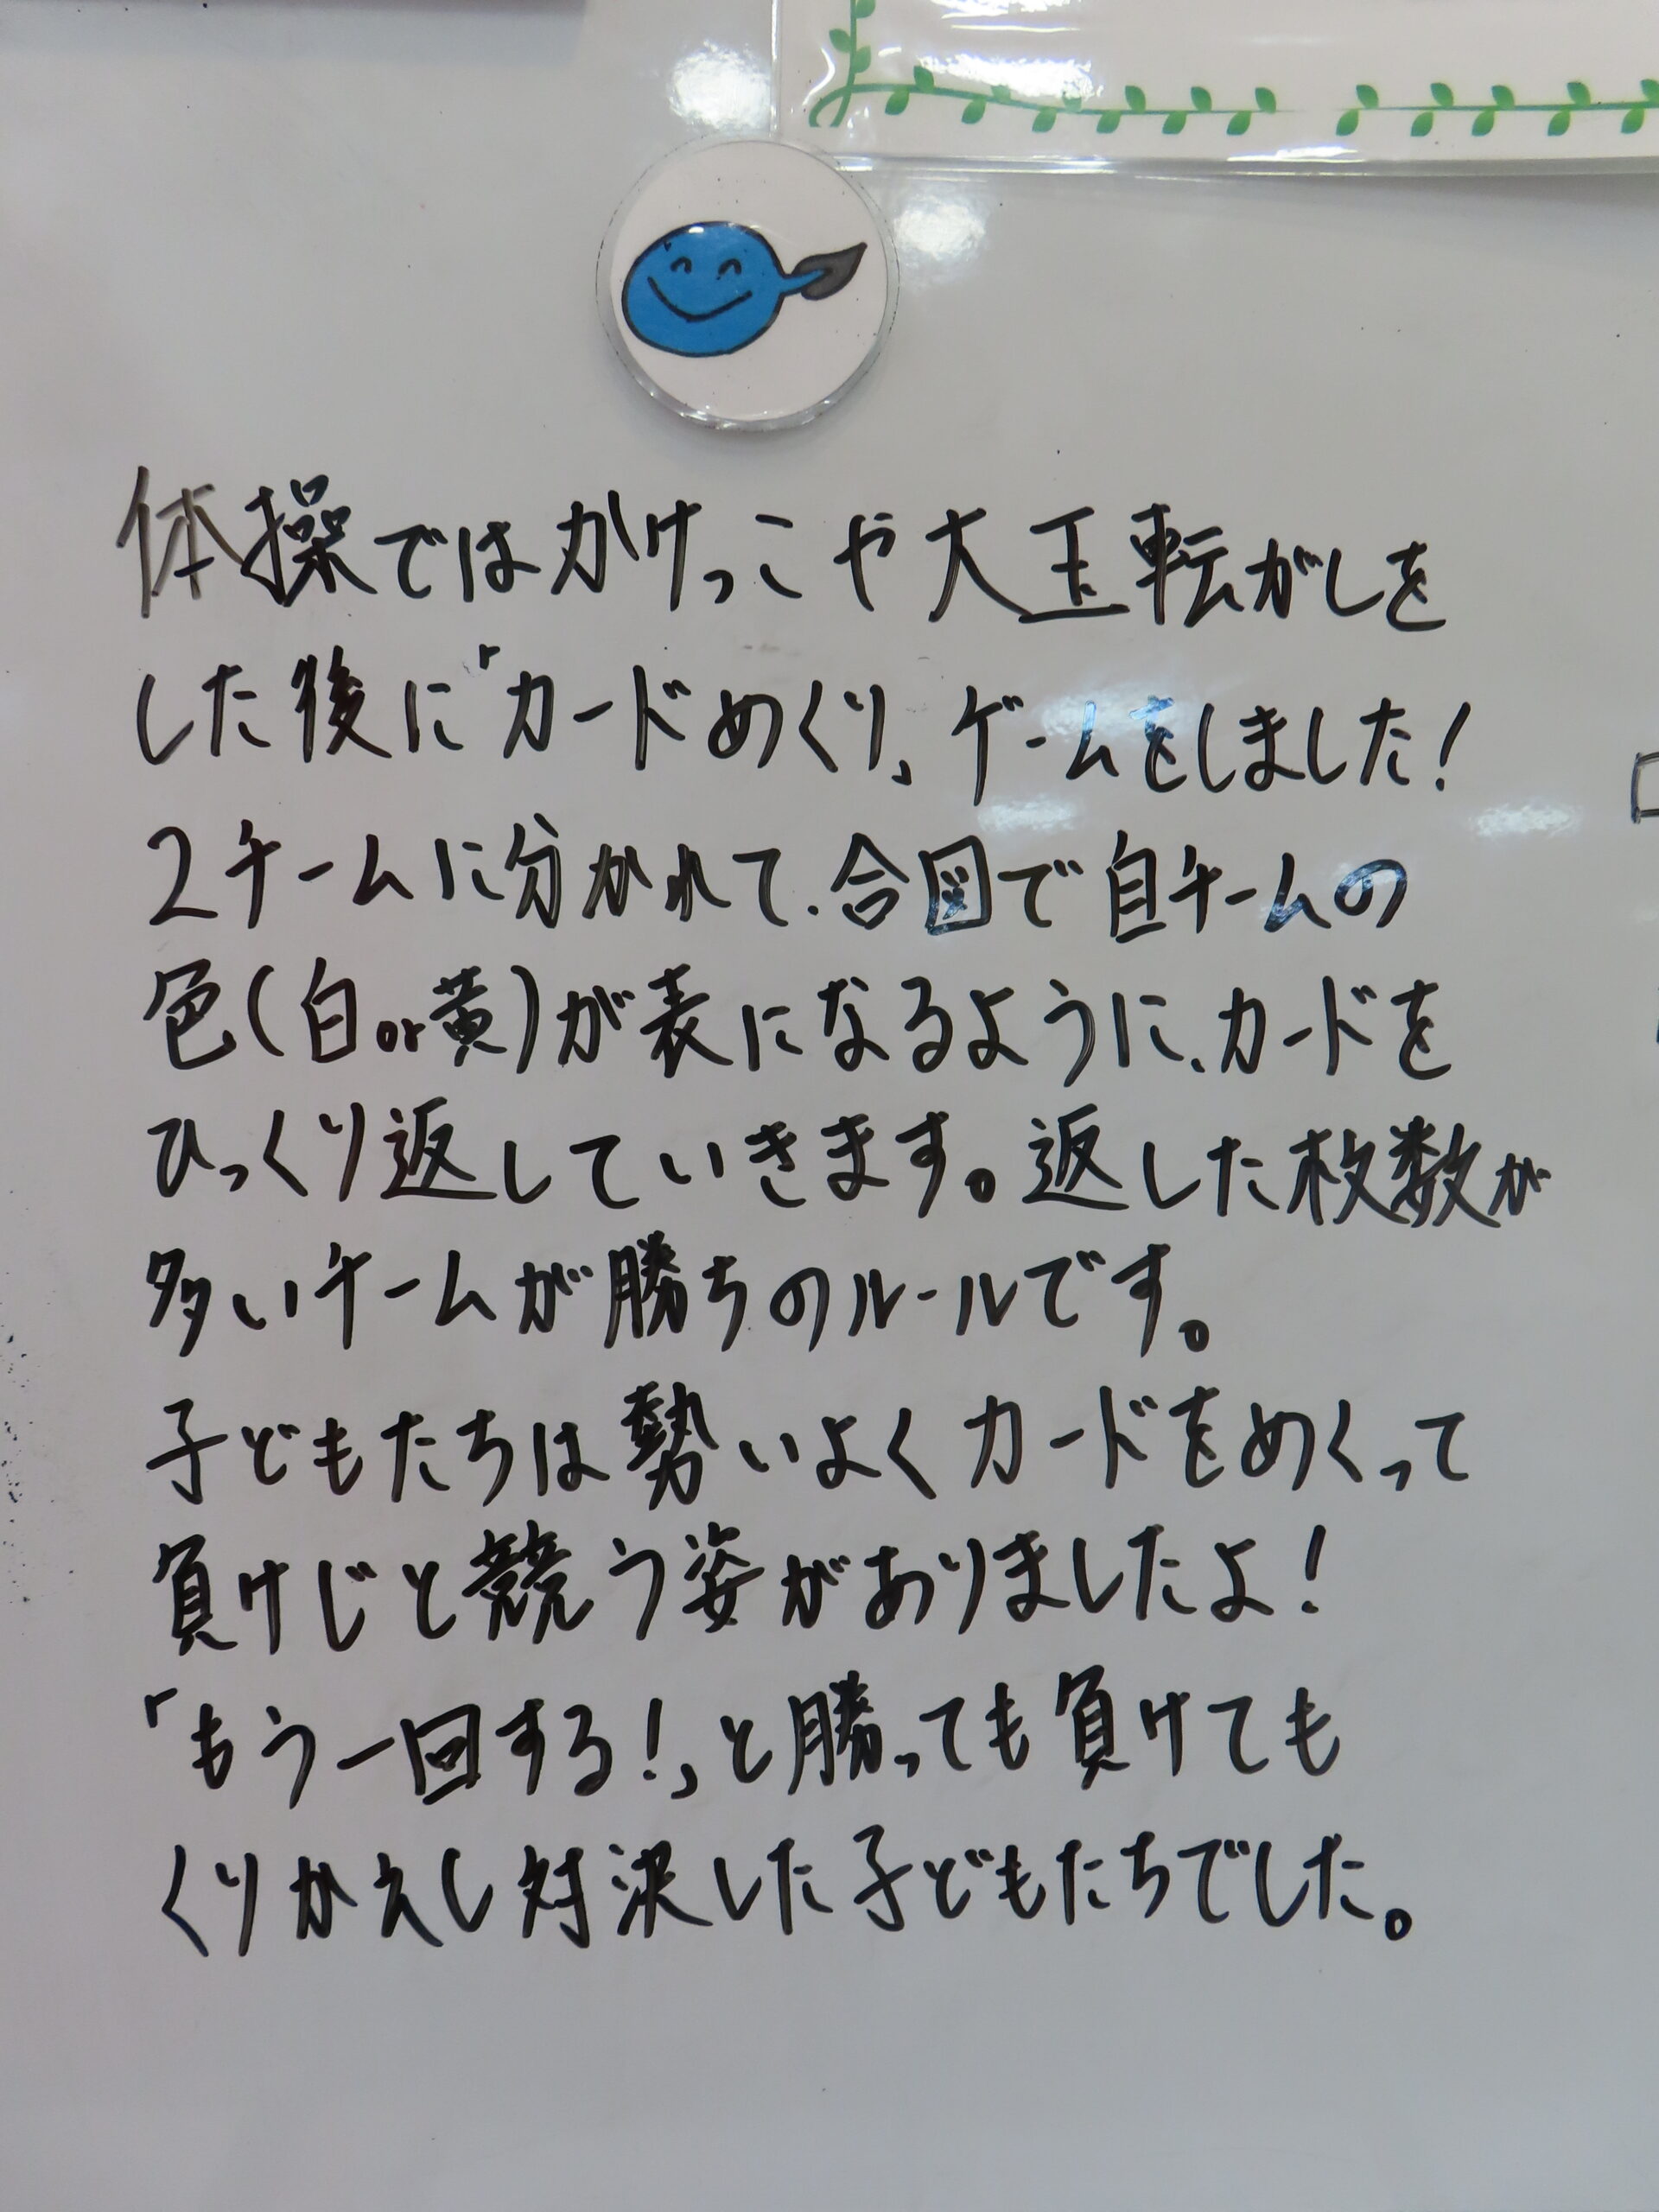 体操ではかけっこや大玉転がしを
した後に「カードめくり」ゲームをしました！
2チームに分かれて、合図で自チームの
色（白or黄）が表になるように、カードを
ひっくり返していきます。返した枚数が
多いチームが勝ちのルールです。
子どもたちは勢いよくカードをめくって
負けじと競う姿がありましたよ！
「もう一回する！」と勝っても負けても
くりかえし対決した子どもたちでした。